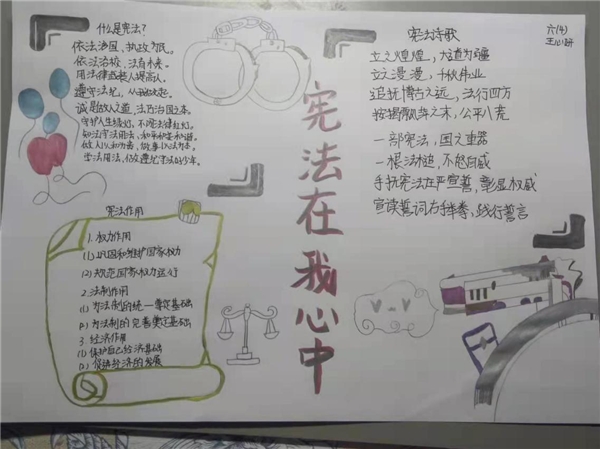 什么是宪法?
依法治国，执政为民。
依法治校，法育未来。
用法律武装人提高人
遵守法纪，从我做起。
诚是做人之道，法乃治国之本。
守护人生绿灯，不闯法律红灯。
知法守法用法，和平和安和谐。
做人以和为贵，做事以法为本。
学法用法，做遵纪守法好少年。
宪法作用
1.权力作用
(1)巩固和维护国家权力
(2)规范国家权力运行
2.法制作用
(1)为法制的统一奠定基础
(2)为法制的完善奠定基础
3.经济作用
(1)保护自己经济基础
(2)促进经济的发展
宪法在我心中
宪法诗歌
立之煌煌，大道为疆
立之漫漫，千秋伟业
追抚博古之远，法行四方
之本，公平八荒
一部宪法，国之重器
一根法槌，不怒自威
手抚宪法庄严宣誓，彰显权威
宣读誓词右手举拳，践行誓言
六(4)
王心妍